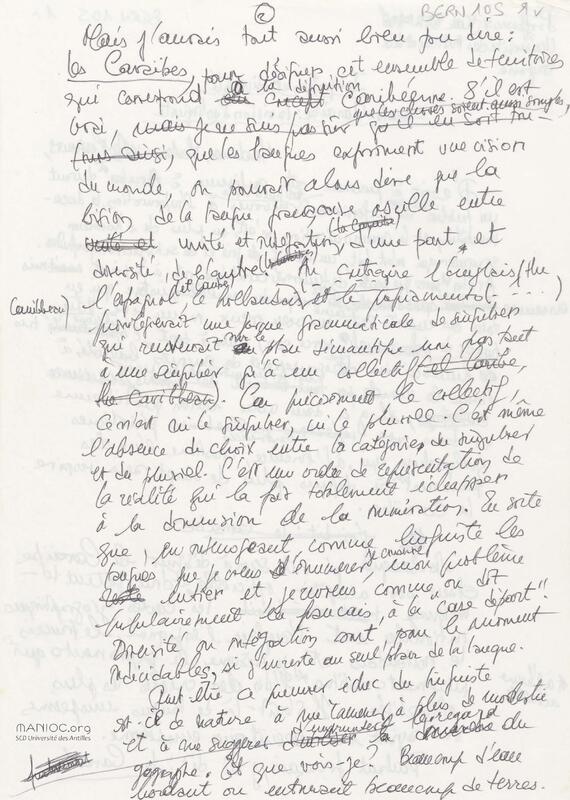 ②
BERN 105 2v
Mais j'aurais tout aussi bien pu dire :
les Caraïbes, pour désigner cet ensemble de territoires
qui correspond à la définition Caribéenne. S'il est
vrai, que les choses soient aussi simples,
mais je ne suis pas sûr qu'il en soit
que les langues expriment une vision
du monde, on pourrait alors dire que la
vision de la langue française oscille entre
unité et intégration (la Caraïbe), d'une part, et
diversité de l'autre. Au contraire l'anglais (the
Caribbean) l'espagnol (el Caribe) le hollandais, et le papiamento (...)
privilégierait une forme grammaticale de singulier
qui renverrait sur le plan sémantique non pas tant
à une singulier qu'à un collectif (el Caribe,
the Caribbean). Car précisément le collectif,
ce n'est ni le singulier, ni le pluriel. C'est même
l'absence du choix entre la catégorie du singulier
et du pluriel. C'est un ordre de représentation de
la réalité qui la fait totalement échapper
à la dimension de la numération. En sorte
que, en m'interrogeant comme linguiste les
langues que je viens d'énumérer, mon problème
entier et je reviens, comme on dit
populairement en français, "à la case départ".
Diversité ou intégration sont pour le moment
indécidables, si j'en reste au seul plan de la langue.
Peut-être ce premier échec du linguiste
est-il de nature à me ramener à plus de modestie
et à me suggérer d'emprunter le regard du
géographe. Et que vois-je ? Beaucoup d'eau
bordant ou entourant beaucoup de terres.
MANIOC.org
SCD Université des Antilles